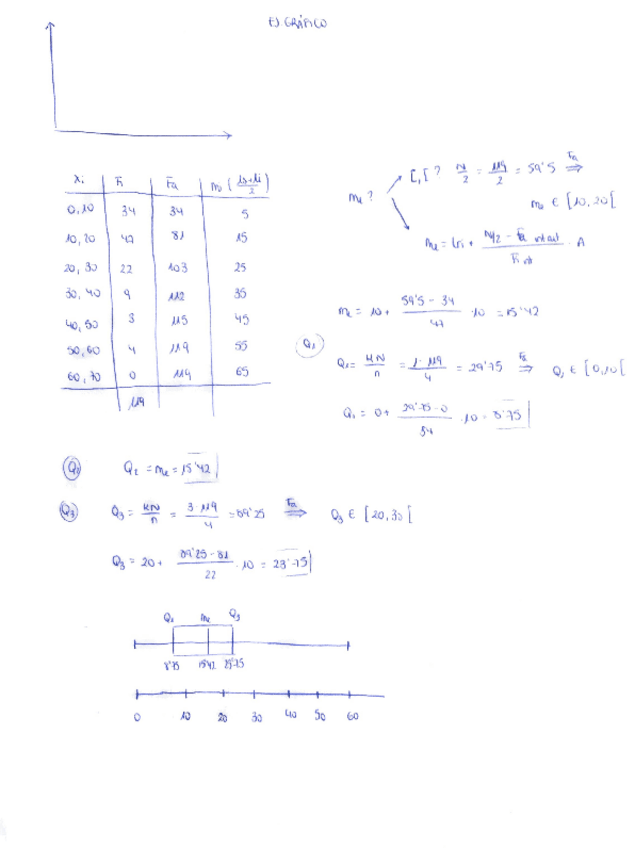 EJ GRÁFICO
Xi Fi Fa mc (Ls+Li/2)
0,10 34 34 5
10,20 47 81 15
20,30 22 103 25
30,40 9 112 35
40,50 3 115 45
50,60 4 119 55
60,70 0 119 65
119
Me ?
[,[ ? N/2 = 119/2 = 59'5 Fa ⇒
Me ∈ [10,20[
Me = Lri + N/2 - Fa int ant / Fi int · A
Me = 10 + 59'5 - 34 / 47 · 10 = 15'42
Q1
Q1 = KN/n = 1·119/4 = 29'75 Fa ⇒ Q1 ∈ [0,10[
Q1 = 0 + 29'75-0 / 34 · 10 = 8'75
Q2 Q2 = Me = 15'42
Q3 Q3 = KN/n = 3·119/4 = 89'25 Fa ⇒ Q3 ∈ [20,30[
Q3 = 20 + 89'25 - 81 / 22 · 10 = 23'75
Q1 Me Q3
8'75 15'42 23'75
0 10 20 30 40 50 60